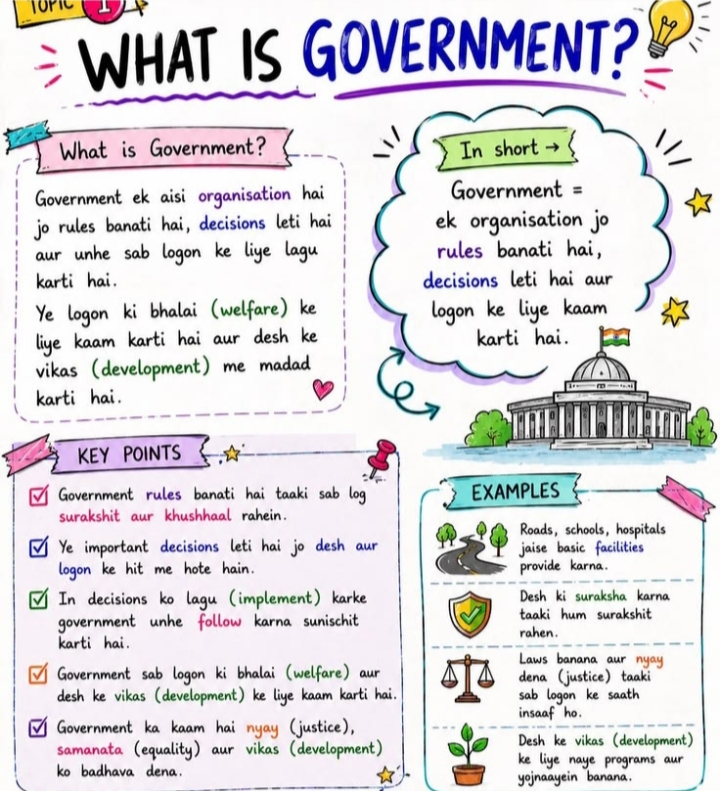 TOPIC 1
WHAT IS GOVERNMENT?
What is Government?
Government ek aisi organisation hai
jo rules banati hai, decisions leti hai
aur unhe sab logon ke liye lagu
karti hai.
Ye logon ki bhalai (welfare) ke
liye kaam karti hai aur desh ke
vikas (development) me madad
karti hai.
In short →
Government =
ek organisation jo
rules banati hai,
decisions leti hai aur
logon ke liye kaam
karti hai.
KEY POINTS
Government rules banati hai taaki sab log
surakshit aur khushhaal rahein.
Ye important decisions leti hai jo desh aur
logon ke hit me hote hain.
In decisions ko lagu (implement) karke
government unhe follow karna sunischit
karti hai.
Government sab logon ki bhalai (welfare) aur
desh ke vikas (development) ke liye kaam karti hai.
Government ka kaam hai nyay (justice),
samanata (equality) aur vikas (development)
ko badhava dena.
EXAMPLES
Roads, schools, hospitals
jaise basic facilities
provide karna.
Desh ki suraksha karna
taaki hum surakshit
rahen.
Laws banana aur nyay
dena (justice) taaki
sab logon ke saath
insaaf ho.
Desh ke vikas (development)
ke liye naye programs aur
yojnaayein banana.